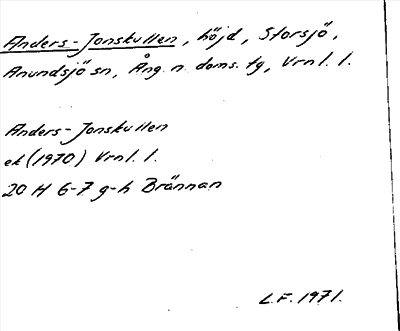 Anders-Jonskullen, höjd, Storsjö,
Anundsjö sn, Ång. n. doms. tg, Vrnl. l.
Anders-Jonskullen
ek (1970) Vrnl. l.
20 H 6-7 g-h Brännan
L.F. 1971.